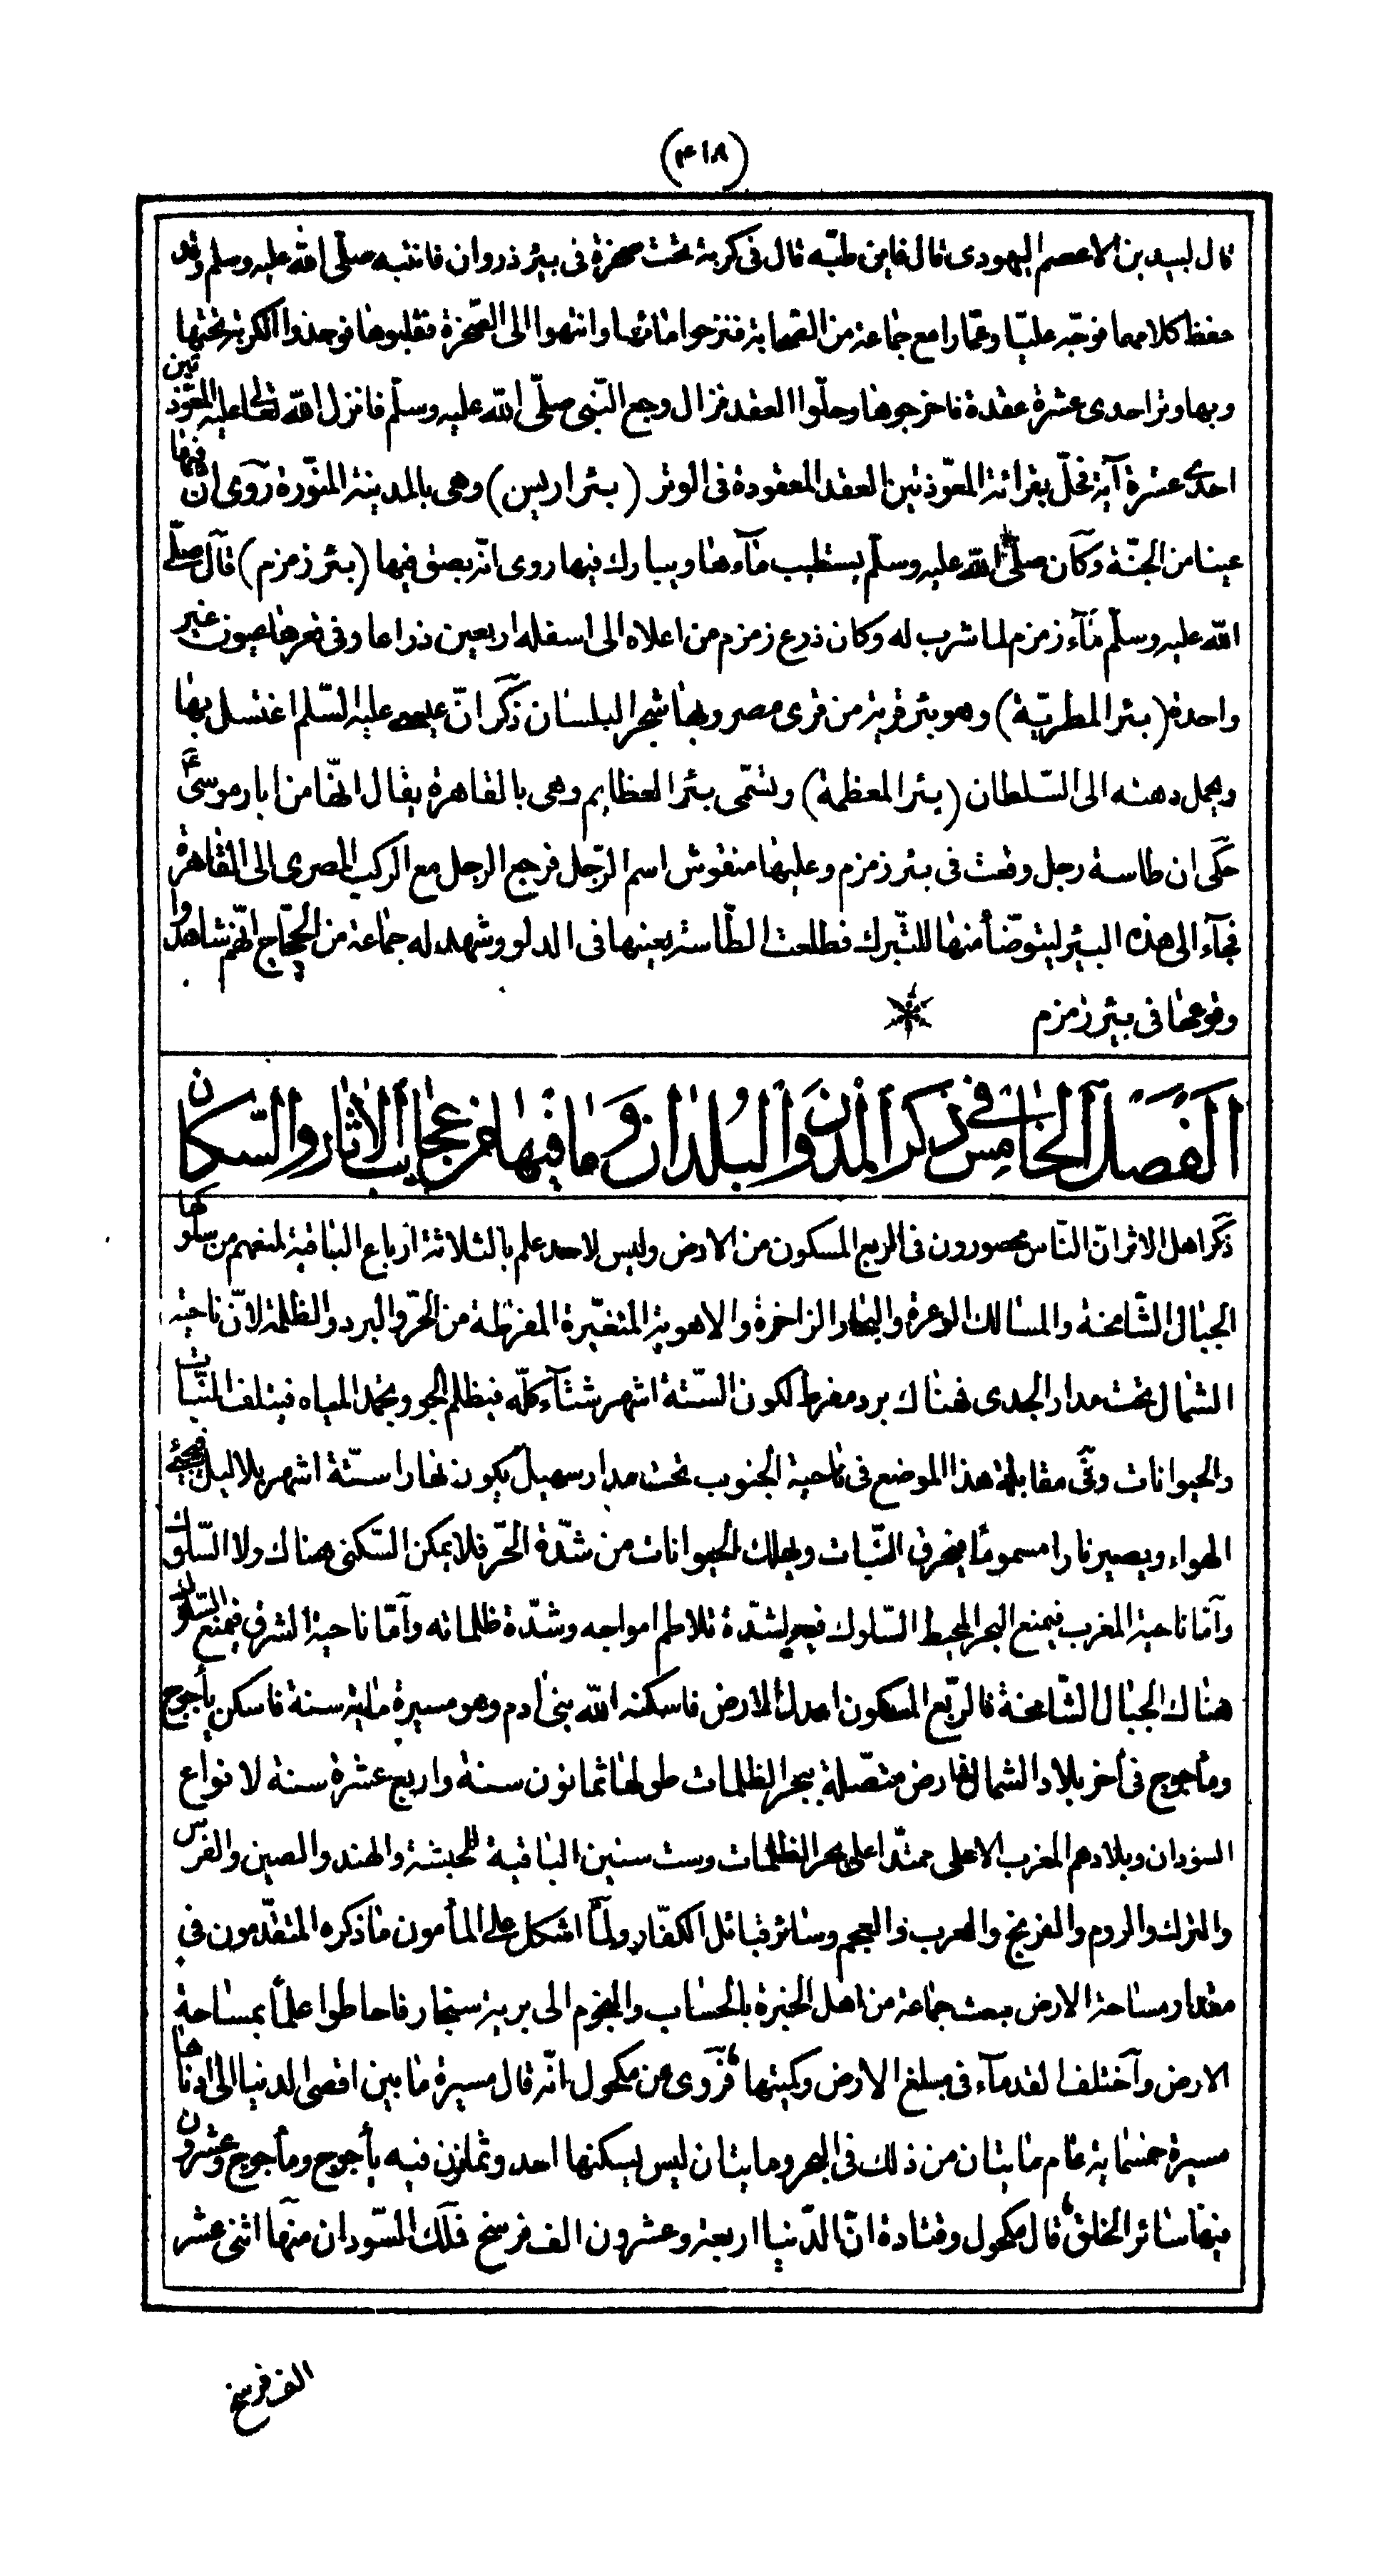 (٤١٨)
قال لبيد بن الاعصم اليهودى قال فاين طبّه قال فى كربة تحت صخرة فى بيئر ذروان فانتبه صلّى الله عليه وسلم وقد
حفظ كلامهما فوجّه عليّا وعمّارا مع جماعة من الصحابة فنزحوا مائها وانتهوا الى الصّخرة فقلبوها فوجدوا الكربة تحتها
وبها وتر احدى عشرة عقدة فاخرجوها وحلّوا العقد فزال وجع النّبى صلّى الله عليه وسلّم فانزل الله تعالى عليه المعوّذتين
احدى عشرة آية فحلّ بقرائة المعوّذتين العقد المعقودة فى الوتر (بئر اريس) وهى بالمدينة المنوّرة روى انّ فيها
عينا من الجنّة وكان صلّى الله عليه وسلّم يستطيب مآءها ويبارك فيها روى انّه بصق فيها (بئر زمزم) قال صلّى
الله عليه وسلّم مآء زمزم لما شرب له وكان ذرع زمزم من اعلاه الى اسفله اربعين ذراعا وفى قعرها عيون غير
واحدة (بئر المطريّة) وهو بئر قرية من قرى مصر وبها شجر البلسان ذكر انّ عيسى عليه السّلم اغتسل بها
ويحمل دهنه الى السّلطان (بئر المعظمة) وتسمّى بئر العظايم وهى بالقاهرة يقال انّها من ابار موسىٰ ؑ
حكى ان طاسة رجل وقعت فى بئر زمزم وعليها منقوش اسم الرّجل فرجع الرجل مع الركب المصرى الى القاهرة
فجآء الى هذه البئر ليتوضّأ منها للتّبرك فطلعت الطّاسة بعينها فى الدلو وشهد له جماعة من الحجّاج انّهم شاهدوا
وقوعها فى بيئر زمزم
الفصل الخامس فى ذكر المدن والبلدان وما فيها من عجايب الاثار والسّكان
ذكر اهل الاثر انّ النّاس محصورون فى الربع المسكون من الارض وليس لاحد علم بالثلاثة ارباع الباقية لمنعهم من سلوكها
الجبال الشّامخة والمسالك الوعرة والبحار الزاخرة والاهوية المتغيّرة المفرطة من الحرّ والبرد والظلمة لانّ ناحية
الشمال تحت مدار الجدى فهناك برد مفرط لكون السّتة اشهر شتآء كلّه فيظلم الجو ويجمد المياه فيتلف النبات
والحيوانات وفى مقابلة هذا الموضع فى ناحية الجنوب تحت مدار سهيل يكون نهارا ستّة اشهر بلا ليل فيحمى
الهواء ويصير نارا مسموما فيحرق النّبات ويهلك الحيوانات من شدّة الحرّ فلا يمكن السّكنى هناك ولا السّلوك
وامّا ناحية المغرب فيمنع البحر المحيط السّلوك فيه لشدّة تلاطم امواجه وشدّة ظلماته وامّا ناحية الشرق فيمنع السّلوك
هناك الجبال الشّامخة فالربّع المسكون اعدل الارض فاسكنه الله بنى ادم وهو مسيرة ماية سنة فاسكن يأجوج
ومأجوج فى أخر بلاد الشمال فى ارض متصّلة ببحر الظلمات طولها ثمانون سنة واربع عشرة سنة لانواع
السودان وبلادهم المغرب الاعلى ممتدّا على بحر الظلمات وست سنين الباقية للحبشة والهند والصين والفرس
والترك والروم والفرنج والعرب والعجم وسائر قبائل الكفّار ولمّا اشكل على المأمون ما ذكره المتقدّمون فى
مقدار مساحة الارض بعث جماعة من اهل الخبرة بالحساب والنجوم الى برية سنجار فاحاطوا علمًا بمساحة
الارض واختلف القدمآء فى مبلغ الارض وكميتها فروى عن مكحول انّه قال مسيرة ما بين اقصى الدنيا الى ادناها
مسيرة خمسماية عام مايتان من ذلك فى البحر ومايتان ليس يسكنها احد وثمانون فيه يأجوج ومأجوج وعشرون
فيها سائر الخلق قال مكحول وقتادة انّ الدّنيا اربعة وعشرون الف فرسخ فلك السّودان منها اثنى عشر
الف فرسخ